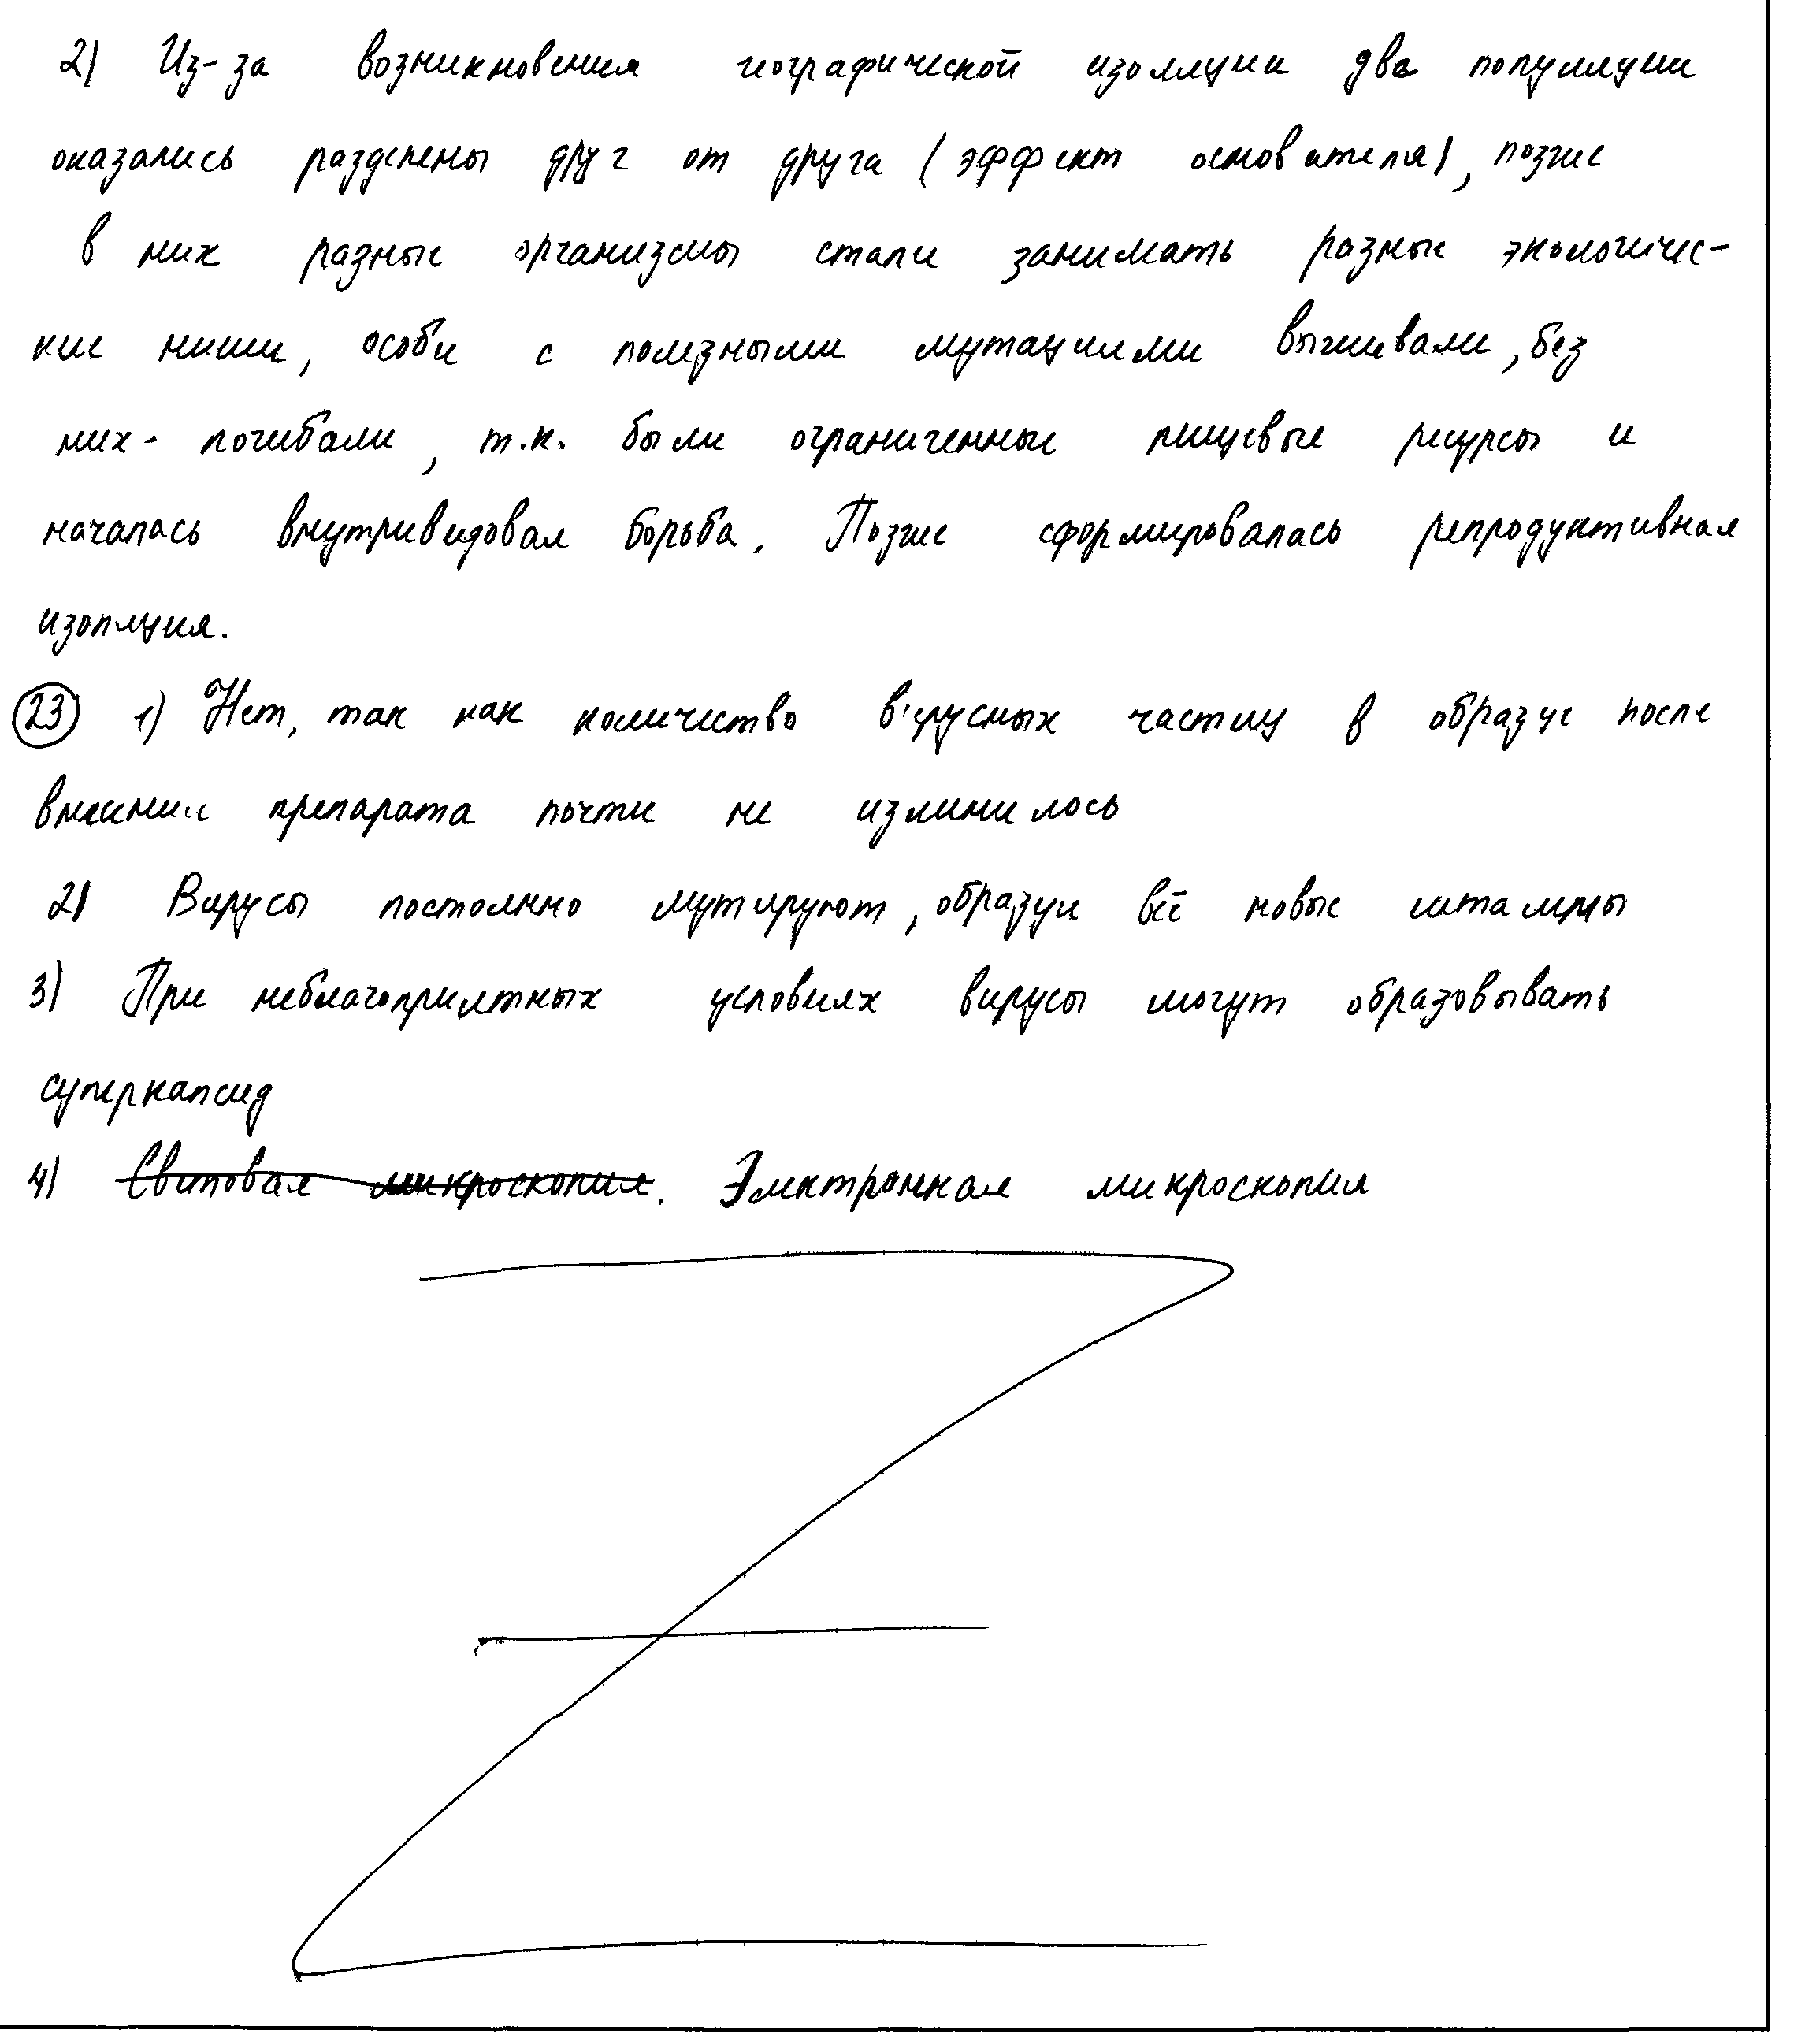 2) Из-за возникновения географической изоляции две популяции
оказались разделены друг от друга (эффект основателя), позже
в них разные организмы стали занимать разные экологичес-
кие ниши, особи с полезными мутациями выживали, без
них - погибали, т.к. были ограниченные пищевые ресурсы и
началась внутривидовая борьба. Позже сформировалась репродуктивная
изоляция.
23 1) Нет, так как количество вирусных частиц в образце после
внесения препарата почти не изменилось
2) Вирусы постоянно мутируют, образуя всё новые штаммы
3) При неблагоприятных условиях вирусы могут образовывать
суперкапсид
4) Световая микроскопия. Электронная микроскопия